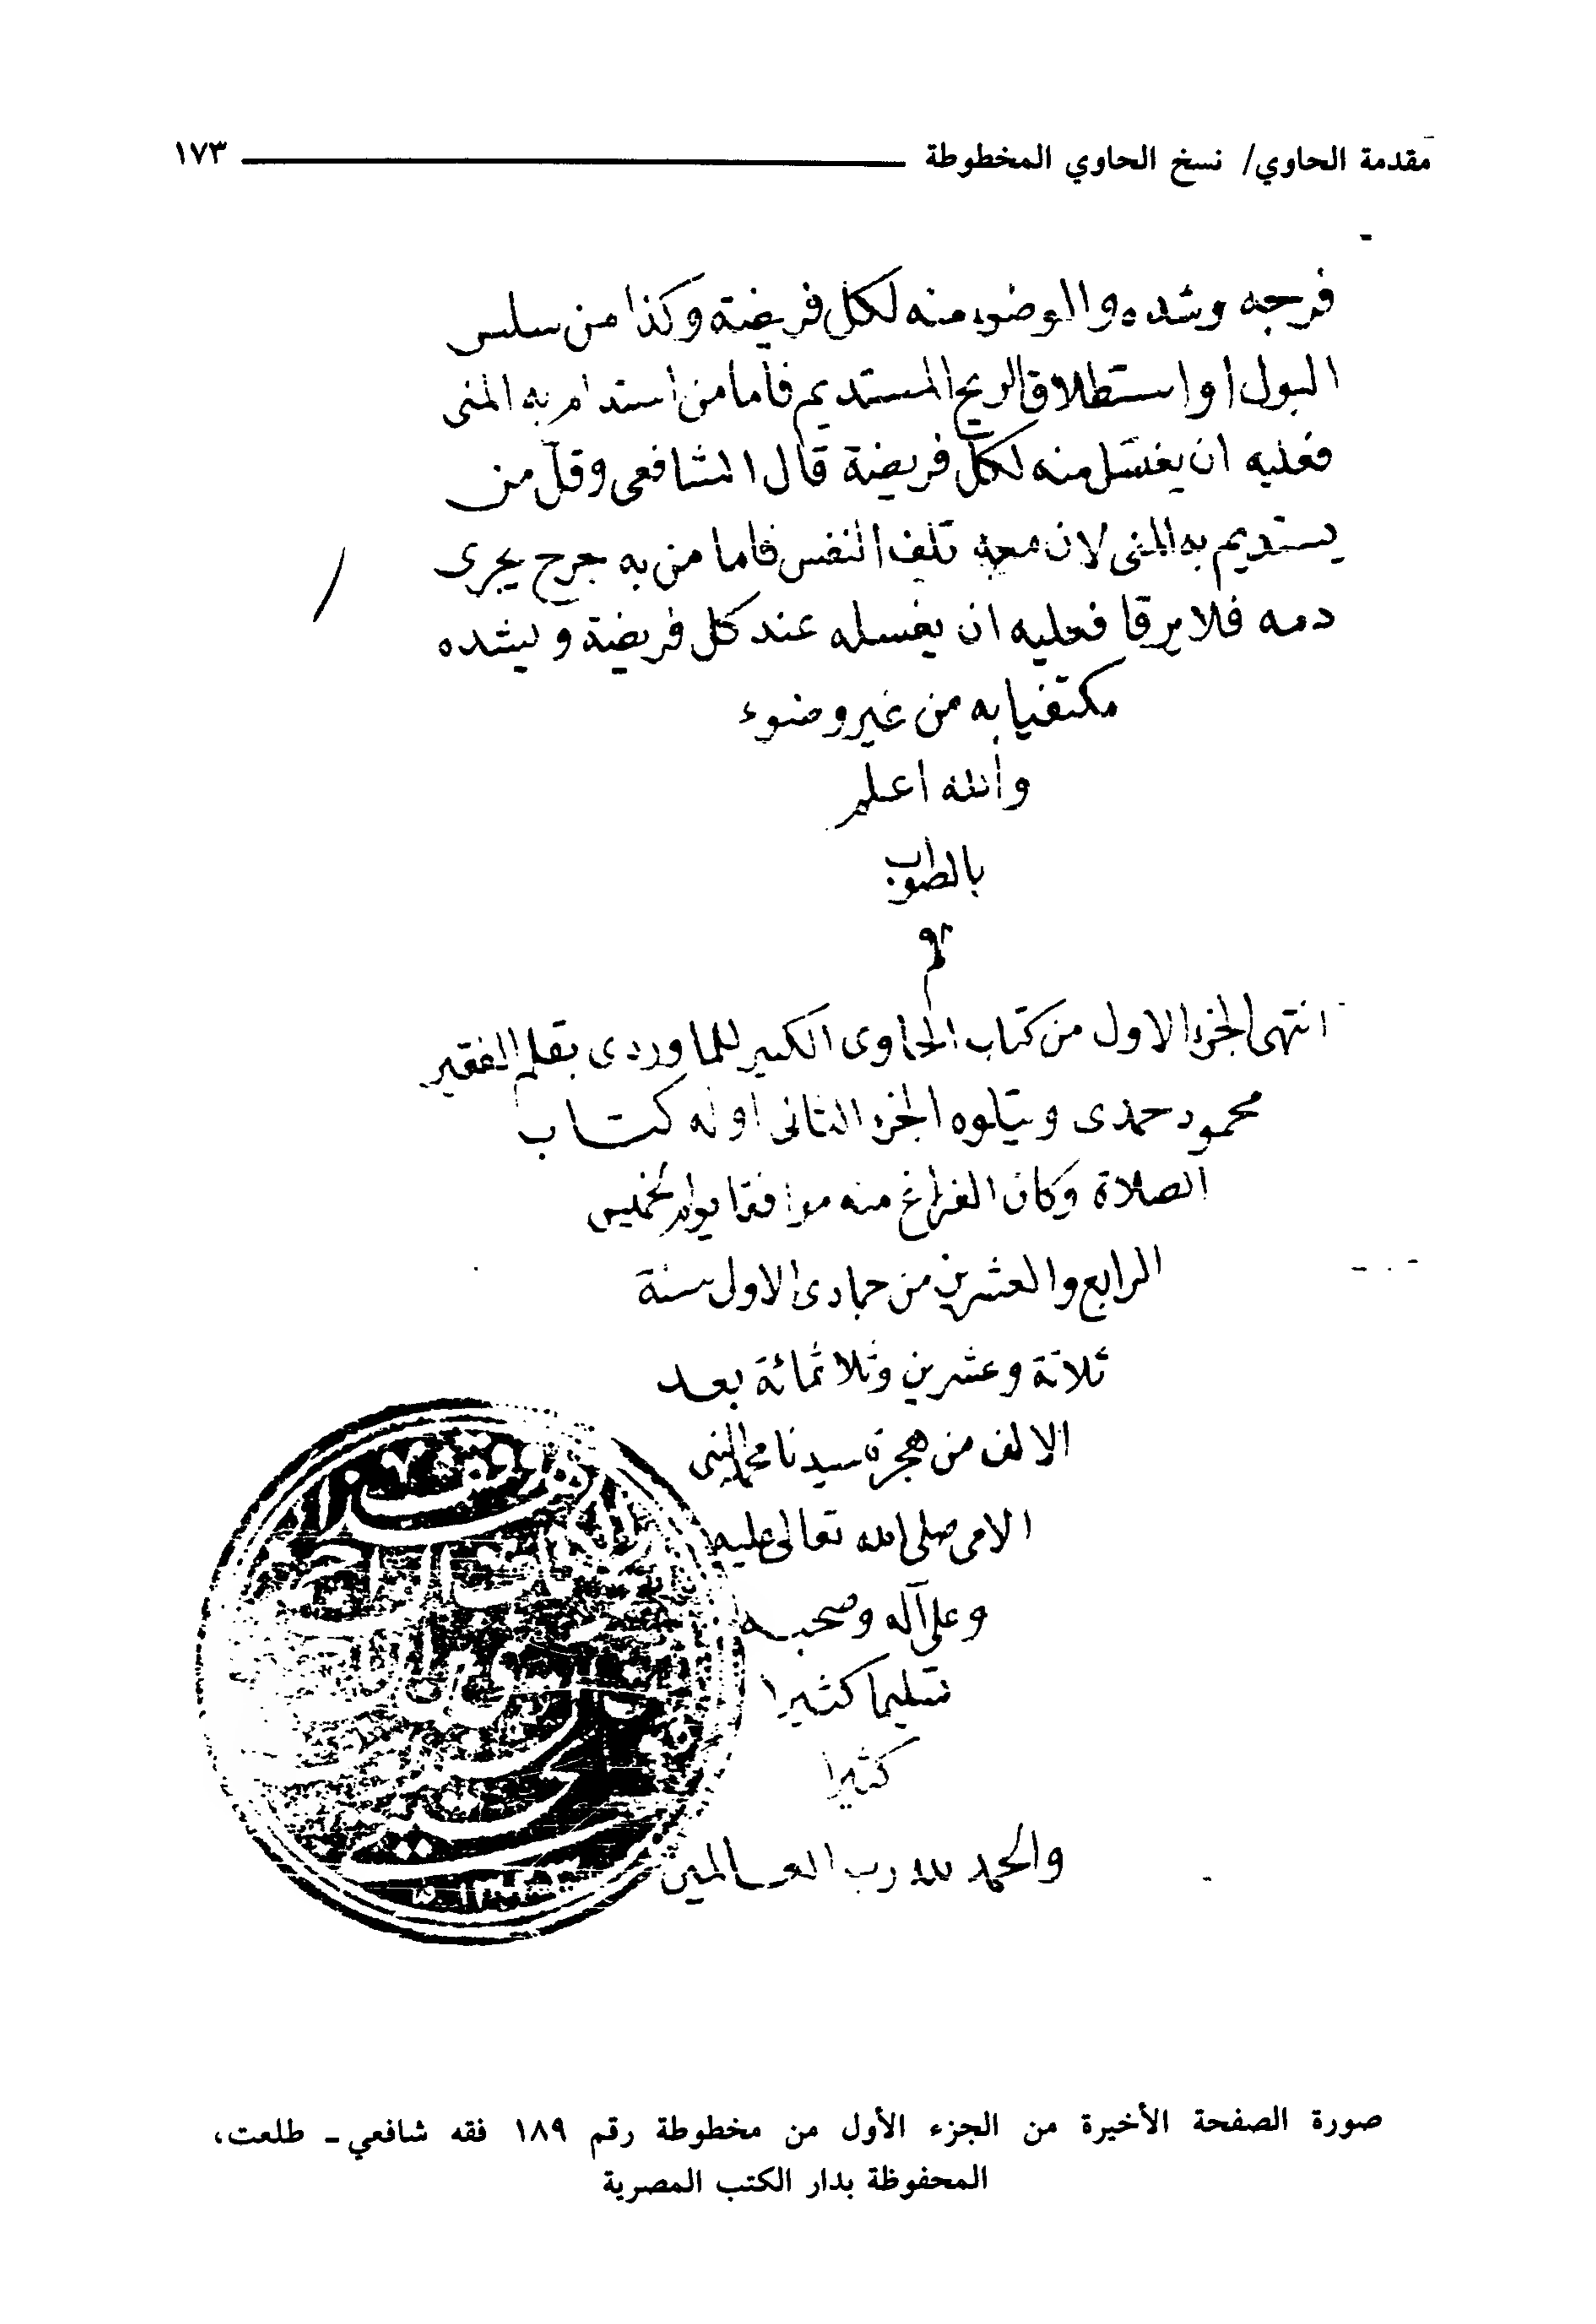 مقدمة الحاوي/ نسخ الحاوي المخطوطة ١٧٣
فرجه وشده والوضوء منه لكل فريضة وكذا من سلس
البول او استطلاق الريح المستديم فأما من استدام به المنى
فعليه ان يغتسل منه لكل فريضة قال الشافعى وقل من
يستديم به المنى لان معه تلف النفس فاما من به جرح يجرى
دمه فلا يرقا فعليه ان يغسله عند كل فريضة ويشده
مكتفيا به من غير وضوء
والله اعلم
بالصواب
انتهى الجزء الاول من كتاب الحاوى الكبير للماوردى بقلم الفقير
محمود حمدى ويتلوه الجزء الثانى اوله كتاب
الصلاة وكان الفراغ منه موافقا يوم الخميس
الرابع والعشرين من جمادى الاول سنة
ثلاثة وعشرين وثلاثمائة بعد
الالف من هجرة سيدنا محمد النبى
الامى صلى الله تعالى عليه
وعلى آله وصحبه
تسليما كثيرا
كثيرا
والحمد لله رب العالمين
صورة الصفحة الأخيرة من الجزء الأول من مخطوطة رقم ١٨٩ فقه شافعي - طلعت،
المحفوظة بدار الكتب المصرية